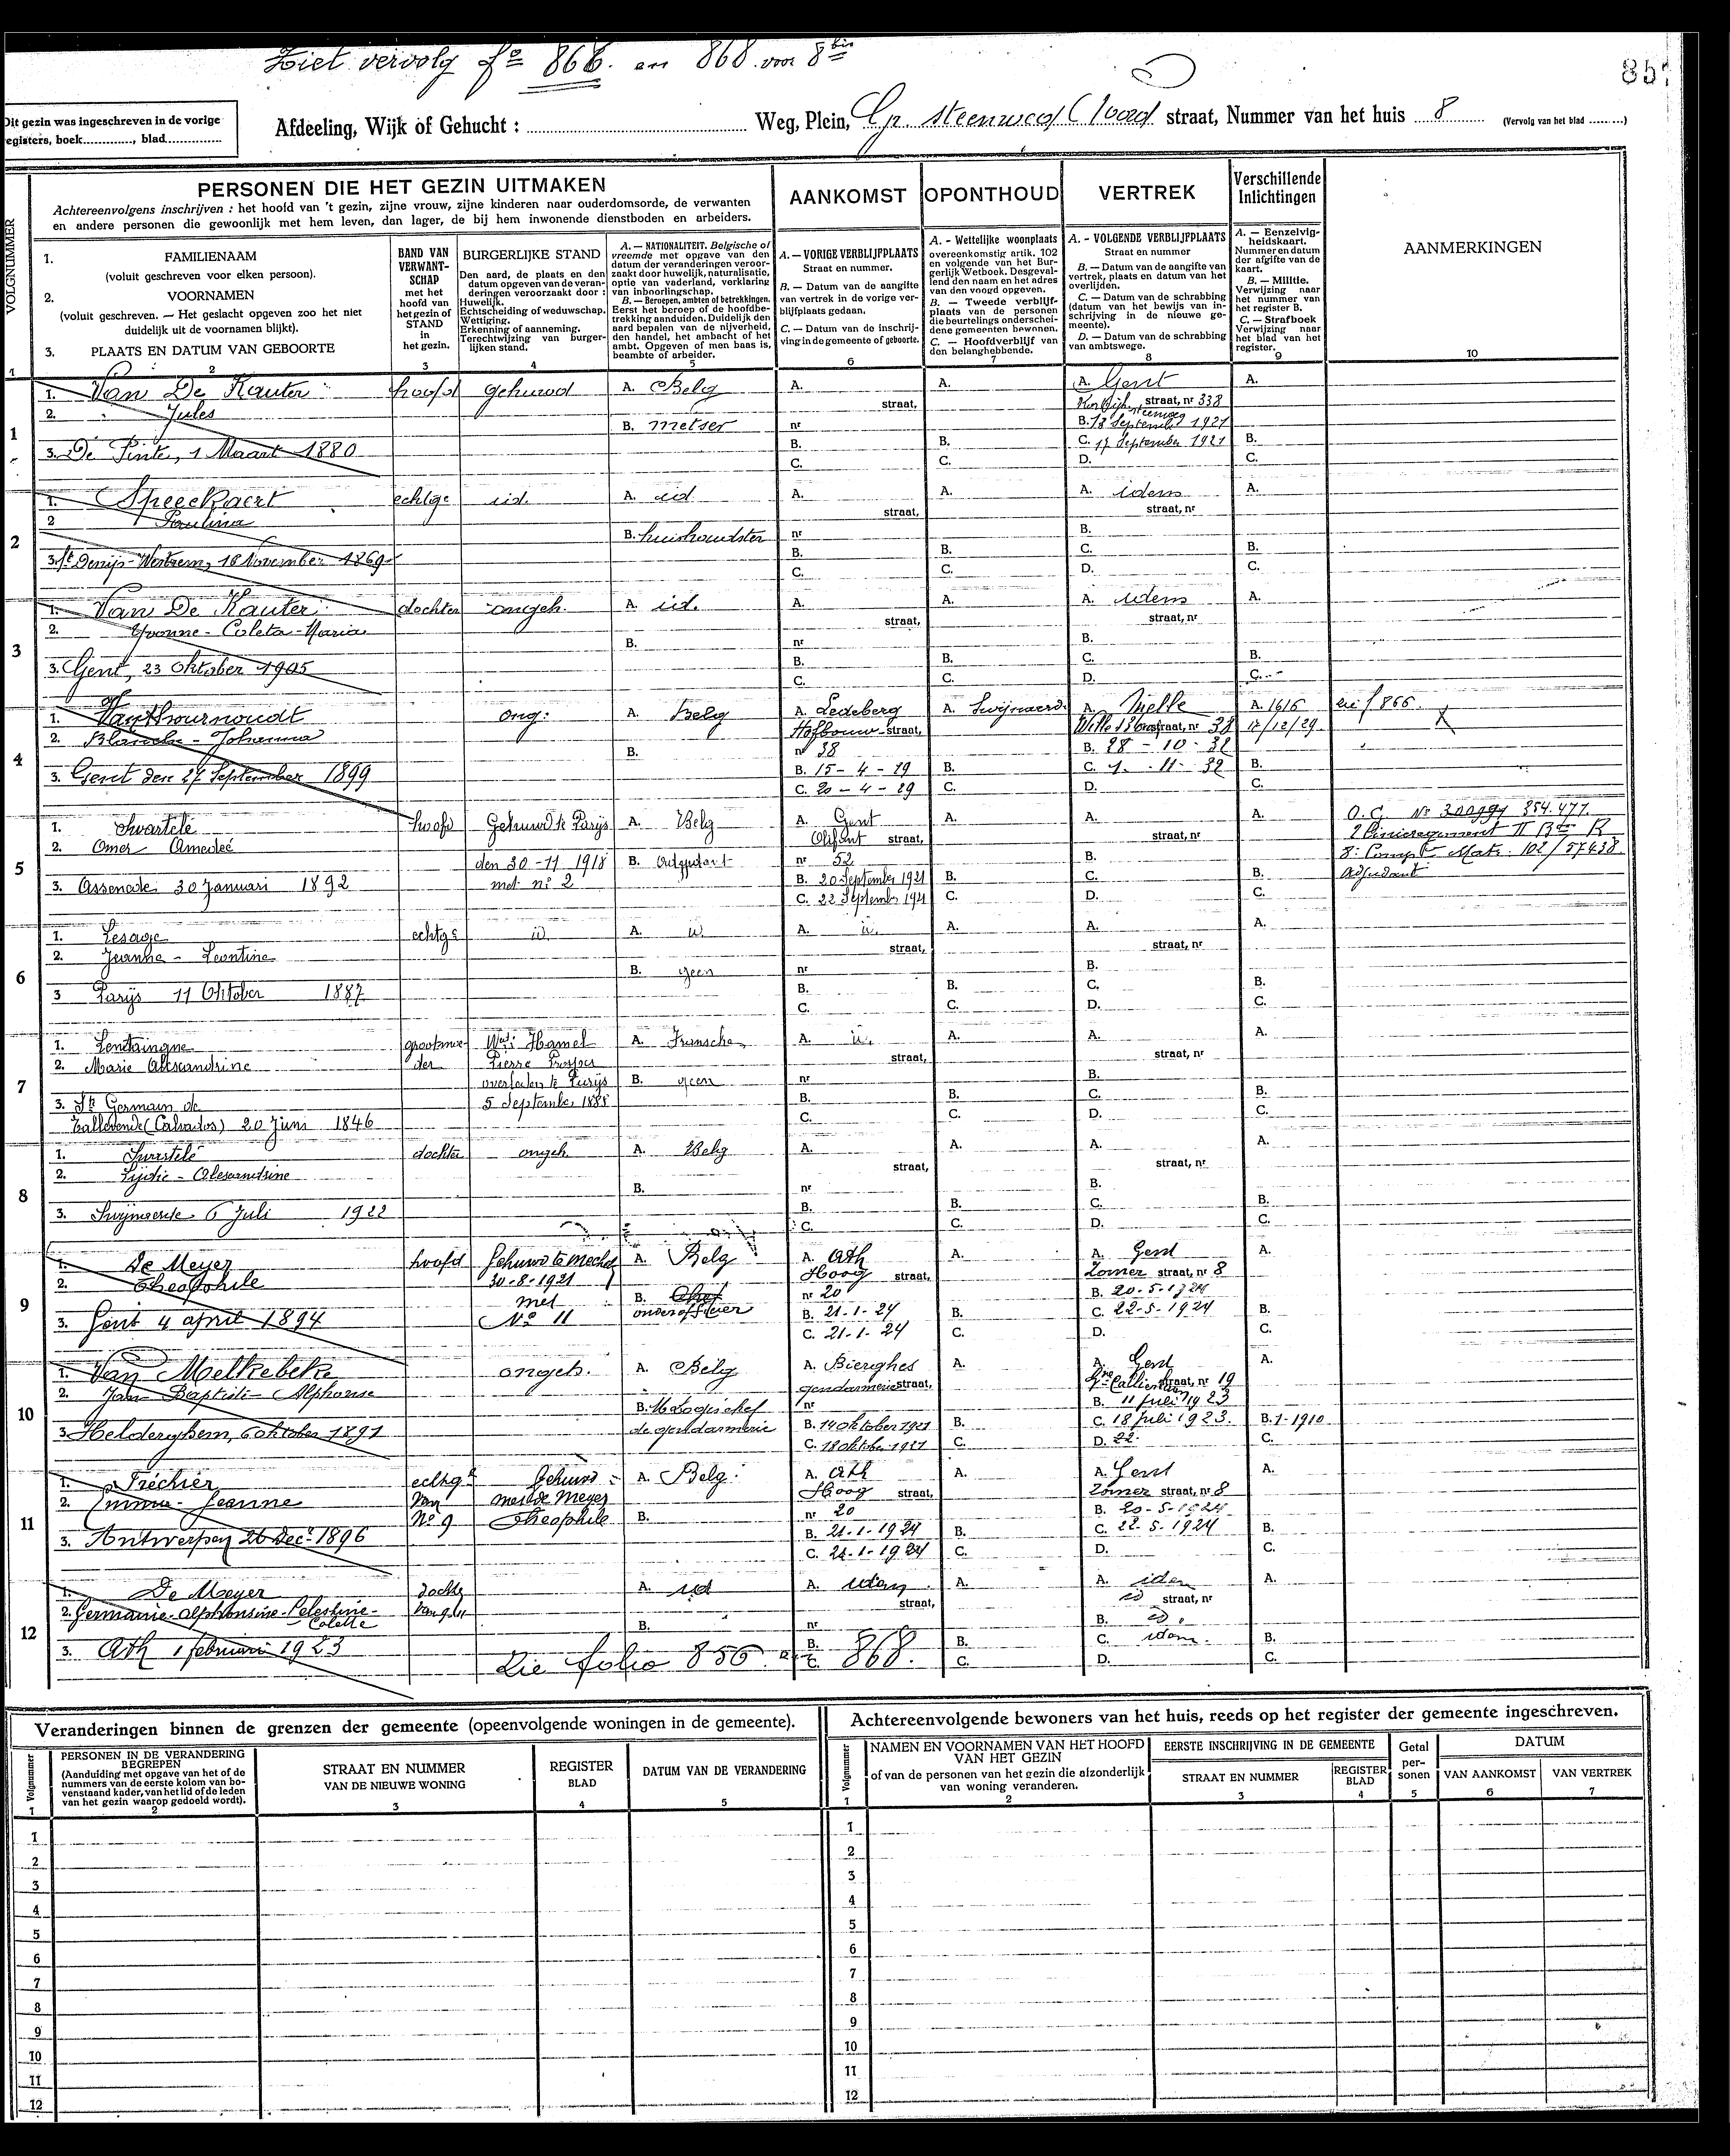 Ziet vervolg fº 866. en 868 voor 8 bis
857
Dit gezin was ingeschreven in de vorige
registers, boek............., blad..............
Afdeeling, Wijk of Gehucht : ........ Weg, Plein, Gr. steenweg straat, Nummer van het huis 8 (Vervolg van het blad .........)
PERSONEN DIE HET GEZIN UITMAKEN
Achtereenvolgens inschrijven : het hoofd van 't gezin, zijne vrouw, zijne kinderen naar ouderdomsorde, de verwanten
en andere personen die gewoonlijk met hem leven, dan lager, de bij hem inwonende dienstboden en arbeiders.
AANKOMST
OPONTHOUD
VERTREK
Verschillende
Inlichtingen
AANMERKINGEN
VOLGNUMMER
1. FAMILIENAAM
(voluit geschreven voor elken persoon).
2. VOORNAMEN
(voluit geschreven. — Het geslacht opgeven zoo het niet
duidelijk uit de voornamen blijkt).
3. PLAATS EN DATUM VAN GEBOORTE
BAND VAN
VERWANT-
SCHAP
met het
hoofd van
het gezin of
STAND
in
het gezin.
BURGERLIJKE STAND
Den aard, de plaats en den
datum opgeven van de veran-
deringen veroorzaakt door :
Huwelijk.
Echtscheiding of weduwschap.
Wettiging.
Erkenning of aanneming.
Terechtwijzing van burger-
lijken stand.
A. — NATIONALITEIT. Belgische of
vreemde met opgave van den
datum der veranderingen veroor-
zaakt door huwelijk, naturalisatie,
optie van vaderland, verklaring
van inboorlingschap.
B. — Beroepen, ambten of betrekkingen.
Eerst het beroep of de hoofdbe-
trekking aanduiden. Duidelijk den
aard bepalen van de nijverheid,
den handel, het ambacht of het
ambt. Opgeven of men baas is,
beambte of arbeider.
A. — VORIGE VERBLIJFPLAATS
Straat en nummer.
B. — Datum van de aangifte
van vertrek in de vorige ver-
blijfplaats gedaan.
C. — Datum van de inschrij-
ving in de gemeente of geboorte.
A. - Wettelijke woonplaats
overeenkomstig artik. 102
en volgende van het Bur-
gerlijk Wetboek. Desgeval-
lend den naam en het adres
van den voogd opgeven.
B. — Tweede verblijf-
plaats van de personen
die beurtelings onderschei-
dene gemeenten bewonen.
C. — Hoofdverblijf van
den belanghebbende.
A. - VOLGENDE VERBLIJFPLAATS
Straat en nummer
B. — Datum van de aangifte van
vertrek, plaats en datum van het
overlijden.
C. — Datum van de schrabbing
(datum van het bewijs van in-
schrijving in de nieuwe ge-
meente).
D. — Datum van de schrabbing
van ambtswege.
A. — Eenzelvig-
heidskaart.
Nummer en datum
der afgifte van de
kaart.
B. — Militie.
Verwijzing naar
het nummer van
het register B.
C. — Strafboek
Verwijzing naar
het blad van het
register.
1 2 3 4 5 6 7 8 9 10
1
1. Van De Kauter hoofd gehuwd A. Belg A. A. A. Gent A.
2. Jules straat, straat, nr 338
B. metser nr B. 13 September 1921
3. De Pinte, 1 Maart 1880 B. B. C. 17 September 1921 B.
C. C. D. C.
2
1. Speeckaert echtge id. A. id. A. A. A. idem A.
2 Paulina straat, straat, nr
B. huishoudster nr B.
3. St Denijs-Westrem, 16 November 1869 B. B. C. B.
C. C. D. C.
3
1. Van De Kauter dochter ongeh. A. id. A. A. A. idem A.
2. Yvonne - Coleta - Maria straat, straat, nr
B. nr B.
3. Gent, 23 Oktober 1905 B. B. C. B.
C. C. D. C.
4
1. ong: A. Belg A. Ledeberg A. Swijnaerd. A. Melle A. 1616 zie f 866.
2. Blanche - Johanna Hofbouw-straat, straat, nr 38 12/12/29.
B. nr 38 B. 28 - 10 - 32
3. Gent den 27 September 1899 B. 15 - 4 - 29 B. C. 1 - 11 - 32 B.
C. 20 - 4 - 29 C. D. C.
5
1. Swartelé hoofd Gehuwd te Parijs A. Belg A. Gent A. A. A. O.C. Nº 354.477
2. Omer Amedeé Olifant straat, straat, nr
den 30-11 1918 B. Adjudant nr 52 B. 8e Comp Matr. 102/57438
3. Assenede 30 Januari 1892 met nº 2 B. 20 September 1921 B. C. B. Adjudant
C. 22 September 1921 C. D. C.
6
1. Lesage echtge id A. id A. id. A. A. A.
2. Jeanne - Leontine straat, straat, nr
B. geen nr B.
3 Parijs 11 Oktober 1887 B. B. C. B.
C. C. D. C.
7
1. Lentaingne grootmoe- Wed: Hamel A. Fransche A. id. A. A. A.
2. Marie Alexandrine der Pierre Prosper straat, straat, nr
overleden te Parijs B. geen nr B.
3. St Germain de 5 September 1888 B. B. C. B.
Tallevende (Calvados) 20 Juni 1846 C. C. D. C.
8
1. Swartelé dochter ongeh A. Belg A. A. A. A.
2. Lydie - Alexandrine straat, straat, nr
B. nr B.
3. Swijnaerde 6 Juli 1922 B. B. C. B.
C. C. D. C.
9
1. De Meyer hoofd Gehuwd te Mechel A. Belg A. Ath A. A. Gend A.
2. Theophile 30-8-1921 Hoog straat, Zomer straat, nr 8
met B. Chef nr 20 B. 20-5-1924
3. Gent 4 april 1894 Nº 11 onderofficier B. 21-1-24 B. C. 22-5-1924 B.
C. 21-1-24 C. D. C.
10
1. Van Moelkebeke ongeh. A. Belg A. Bierghes A. A. Gend A.
2. Jan Baptiste Alphonse gendarmerie straat, straat, nr 19
B. M. Logis chef nr B. 11 Juli 1923
3. Helderghem, 6 oktober 1891 de gendarmerie B. 14 Oktober 1921 B. C. 18 Juli 1923. B. 1-1910
C. 18 Oktober 1921 C. D. 22. C.
11
1. Tréchier echtge Gehuwd A. Belg. A. Ath A. A. Gend A.
2. Emma - Jeanne van met De Meyer Hoog straat, Zomer straat, nr 8
Nº 9 Theophile B. nr 20 B. 20-5-1924
3. Antwerpen 26 Dec. 1896 B. 21-1-1924 B. C. 22-5-1924 B.
C. 21-1-1924 C. D. C.
12
1. De Meyer dochter A. id A. idem A. A. idem A.
2. Germanie-Alphonsine-Celestine- straat, id straat, nr
Colette B. nr B. id.
3. Ath 1 februari 1923 B. B. C. idem. B.
Zie folio 856 en 868. C. C. D. C.
Veranderingen binnen de grenzen der gemeente (opeenvolgende woningen in de gemeente).
Achtereenvolgende bewoners van het huis, reeds op het register der gemeente ingeschreven.
Volgnummer
PERSONEN IN DE VERANDERING
BEGREPEN
(Aanduiding met opgave van het of de
nummers van de eerste kolom van bo-
venstaand kader, van het lid of de leden
van het gezin waarop gedoeld wordt).
STRAAT EN NUMMER
VAN DE NIEUWE WONING
REGISTER
BLAD
DATUM VAN DE VERANDERING
1 2 3 4 5
Volgnummer
NAMEN EN VOORNAMEN VAN HET HOOFD
VAN HET GEZIN
of van de personen van het gezin die afzonderlijk
van woning veranderen.
EERSTE INSCHRIJVING IN DE GEMEENTE
STRAAT EN NUMMER
REGISTER
BLAD
Getal
per-
sonen
DATUM
VAN AANKOMST
VAN VERTREK
1 2 3 4 5 6 7
1 1
2 2
3 3
4 4
5 5
6 6
7 7
8 8
9 9
10 10
11 11
12 12